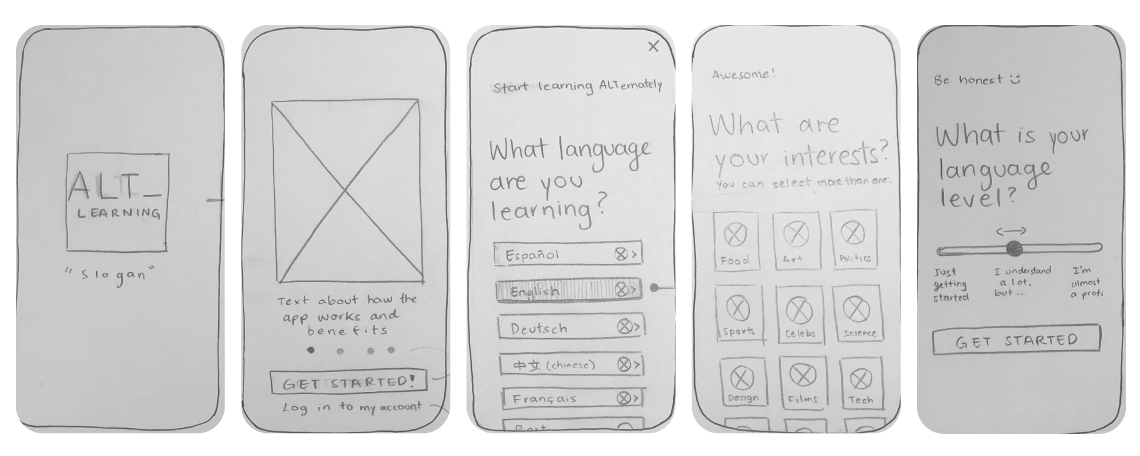 ALT_
LEARNING
"Slogan"
Text about how the
app works and
benefits
GET STARTED!
Log in to my account
Start learning ALTernately
What language
are you
learning?
Español
English
Deutsch
中文 (chinese)
Français
Awesome!
What are
your interests?
You can select more than one.
Food
Art
Politics
Sports
Celebs
Science
Design
Films
Tech
Be honest
What is your
language
level?
Just
getting
started
I understand
a lot,
but...
I'm
almost
a profi
GET STARTED